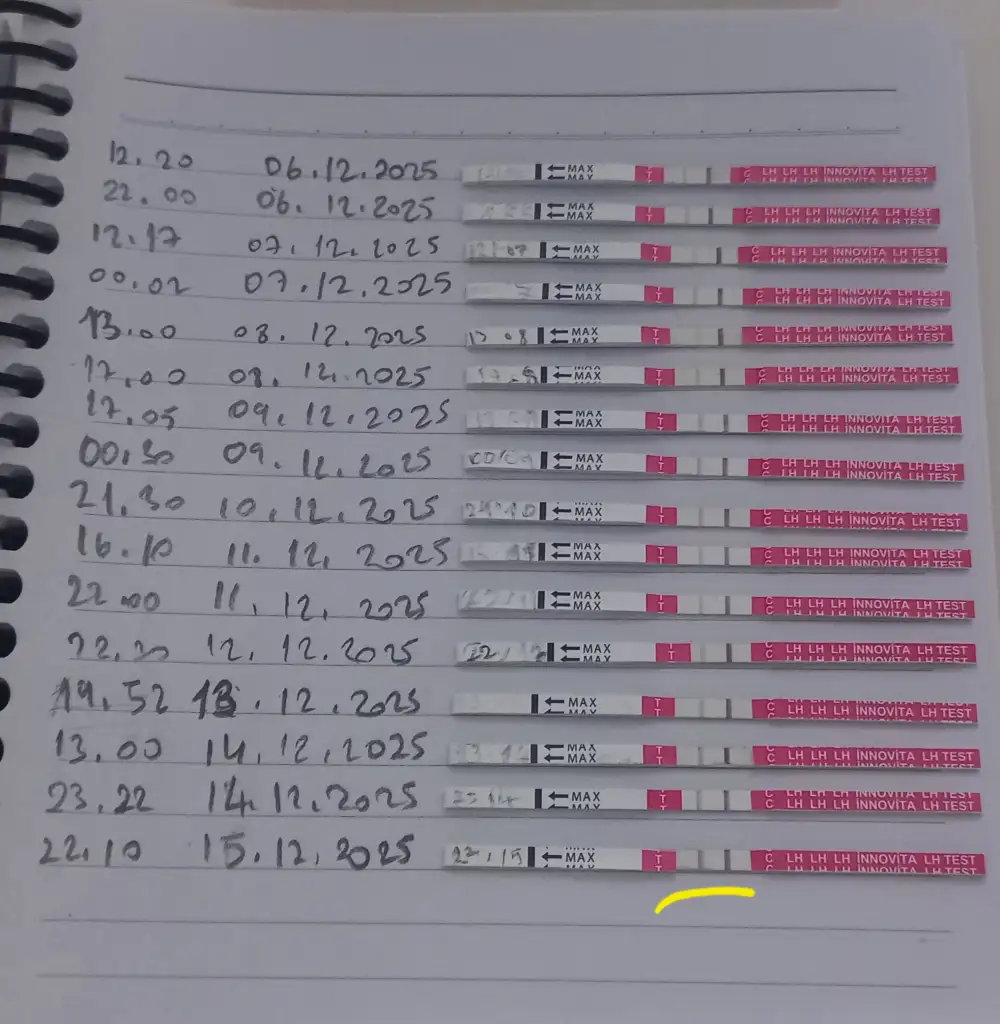 12.20 06.12.2025 ←MAX MAX T C LH LH LH İNNOVİTA LH TEST
22.00 06.12.2025 ←MAX MAX T C LH LH LH İNNOVİTA LH TEST
12.17 07.12.2025 12 07 ←MAX MAX T C LH LH LH İNNOVİTA LH TEST
00.02 07.12.2025 ←MAX MAX T C LH LH LH İNNOVİTA LH TEST
13.00 08.12.2025 13 08 ←MAX MAX T C LH LH LH İNNOVİTA LH TEST
17.00 08.12.2025 17 8 ←MAX MAX T C LH LH LH İNNOVİTA LH TEST
17.05 09.12.2025 ←MAX MAX T C LH LH LH İNNOVİTA LH TEST
00.30 09.12.2025 00/09 ←MAX MAX T C LH LH LH İNNOVİTA LH TEST
21.30 10.12.2025 21 10 ←MAX MAX T C LH LH LH İNNOVİTA LH TEST
16.10 11.12.2025 ←MAX MAX T C LH LH LH İNNOVİTA LH TEST
22.00 11.12.2025 ←MAX MAX T C LH LH LH İNNOVİTA LH TEST
22.30 12.12.2025 22/12 ←MAX MAX T C LH LH LH İNNOVİTA LH TEST
19.52 13.12.2025 ←MAX MAX T C LH LH LH İNNOVİTA LH TEST
13.00 14.12.2025 ←MAX MAX T C LH LH LH İNNOVİTA LH TEST
23.22 14.12.2025 23 14 ←MAX MAX T C LH LH LH İNNOVİTA LH TEST
22.10 15.12.2025 22/15 ←MAX T C LH LH LH İNNOVİTA LH TEST